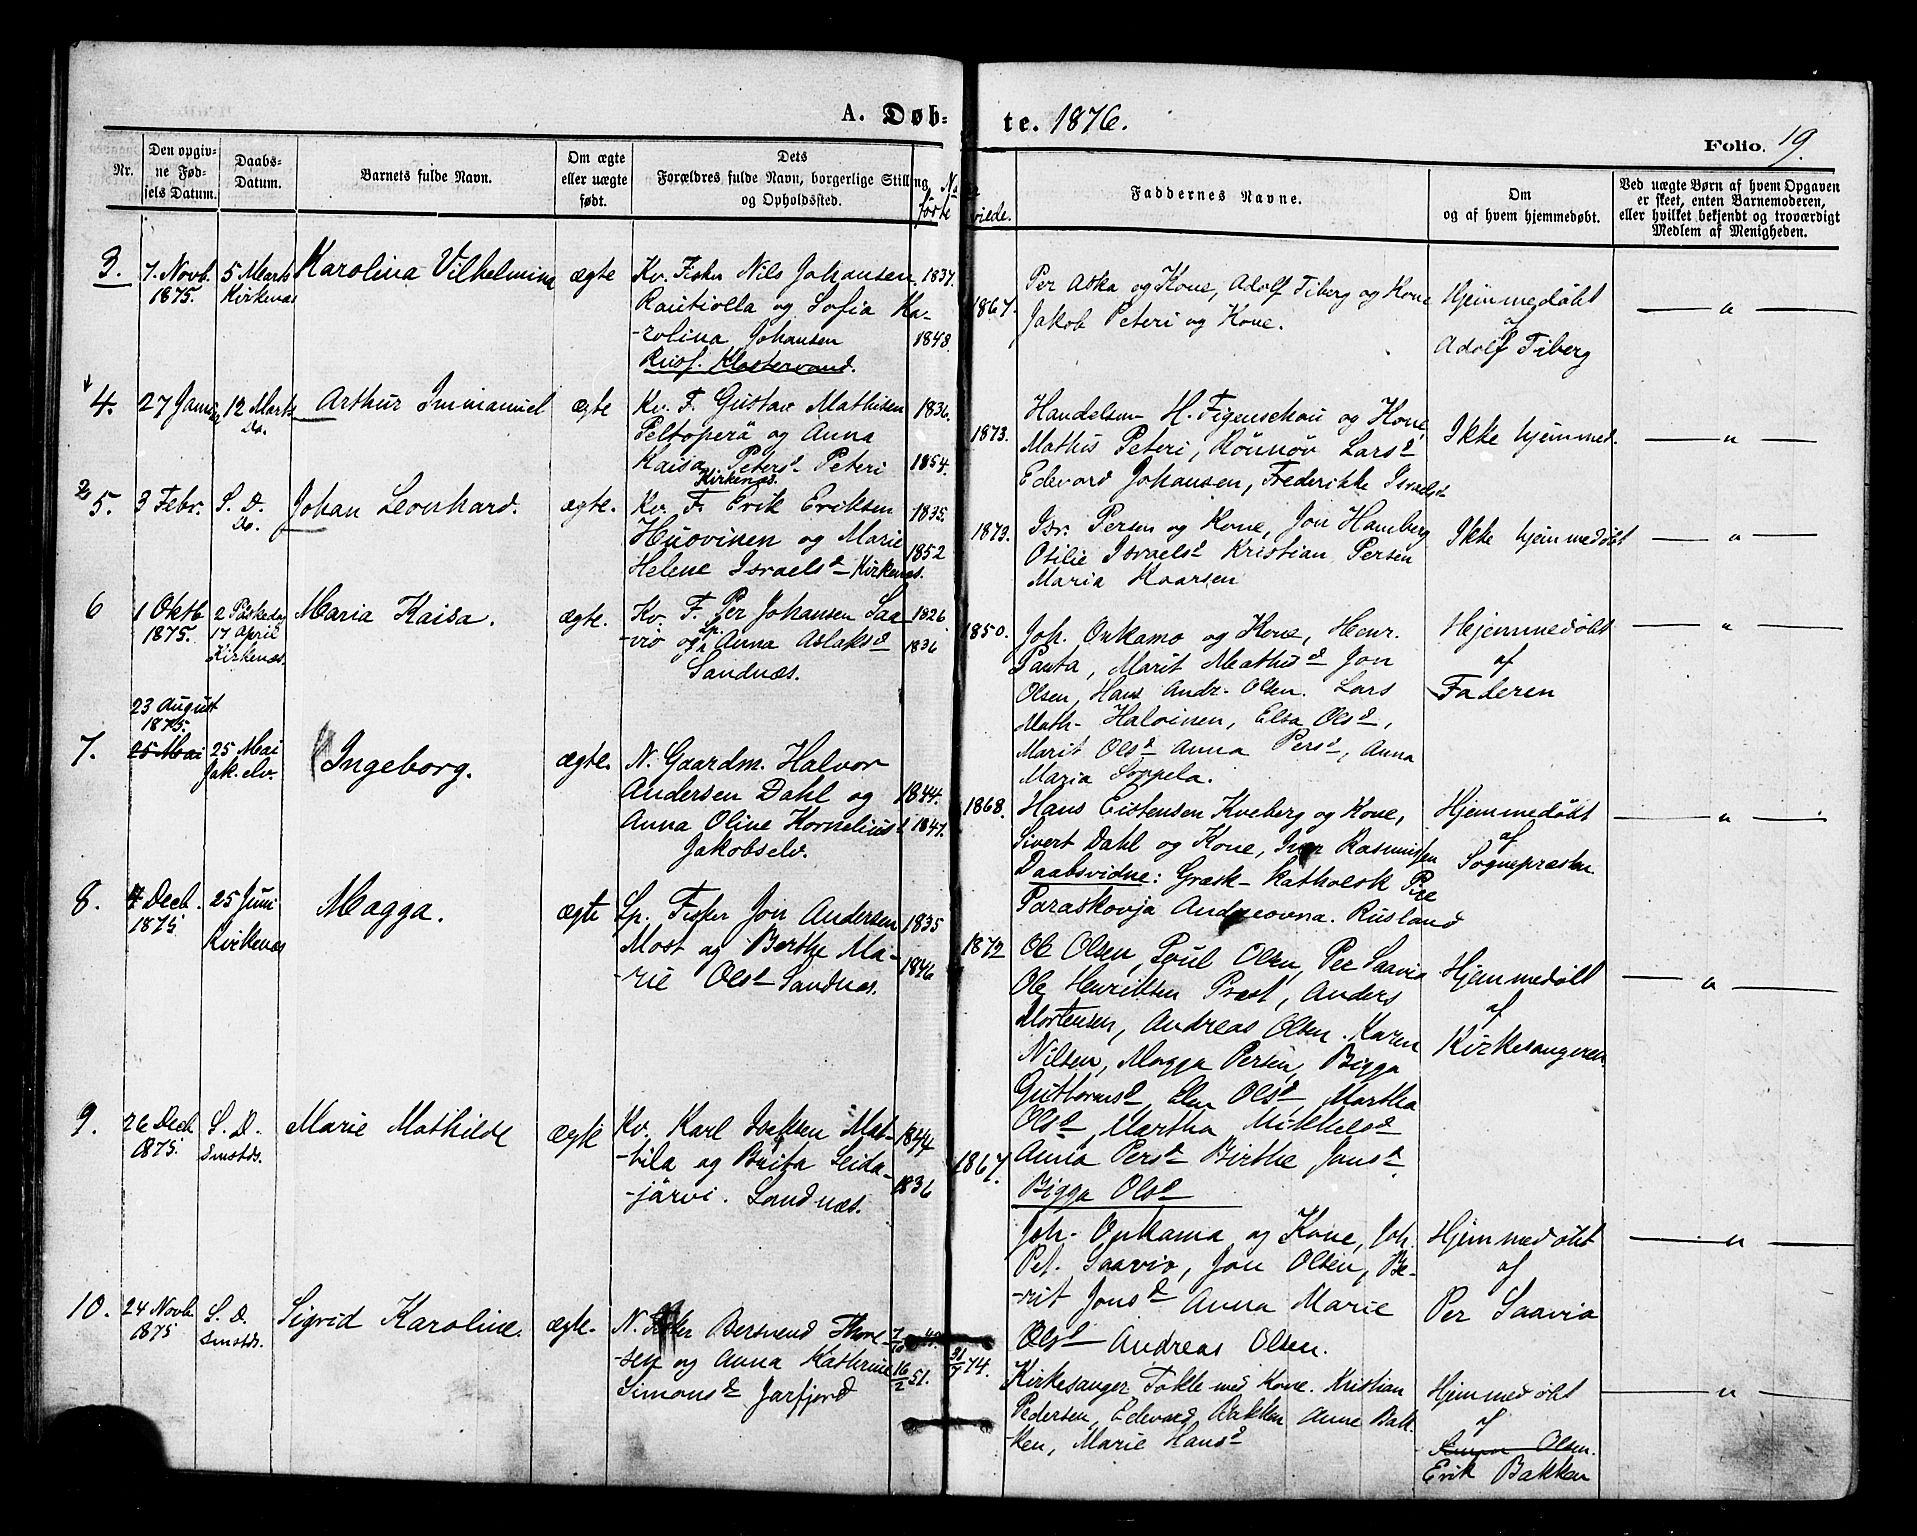 A. Døb- te. 1876.
Folio. 19.
Nr.
Den opgiv-
ne Fød-
sels Datum.
Daabs-
Datum.
Barnets fulde Navn.
Om ægte
eller uægte
født.
Dets
Forældres fulde Navn, borgerlige Stilling
og Opholdssted.
Faddernes Navne.
Om
og af hvem hjemmedøbt.
Ved uægte Børn af hvem Opgaven
er skeet, enten Barnemoderen,
eller hvilket bekjendt og troværdigt
Medlem af Menigheden.
3.
7. Novb.
1875.
5 Marts
Kirkenæs
Karolina Vilhelmina
ægte
Kv. Fisker Nils Johansen
Rautiolla og Sofia Ka-
-rolina Johansen
Klostervand.
1837.
1848.
1867.
Per Aska og Kone, Adolf Tiberg og Kone
Jakob Peteri og Kone.
Hjemmedøbt
af
Adolf Tiberg
— " —
4.
27 Januar
12 Marts
Do.
Arthur Immanuel
ægte
Kv. F. Gustav Mathisen
Peltoperä og Anna
Kaisa Petersd Peteri
Kirkenæs.
1836.
1854.
1873.
Handelsm. H. Figenschou og Kone,
Mathis Peteri, Rönnöv Larsd
Edevard Johansen, Frederikke Israelsd
Ikke hjemmed.
— " —
5.
3 Febr.
S. D.
Do.
Johan Leonhard.
ægte.
Kv. F. Erik Eriksen
Huovinen og Marie
Helene Israelsd Kirkenæs.
1835.
1852
1873.
Isr. Persen og Kone, Jon Hamberg
Otilie Israelsd Kristian Persen
Maria Kaarsen
Ikke hjemmedøbt
— " —
6
1 Oktb
1875.
2 Paaskedag
17 April
Kirkenæs.
Maria Kaisa.
ægte.
Kv. F. Per Johansen Saa-
-vio og Lp. Anna Aslaksd
Sandnæs.
1826.
1836
1850.
Joh. Onkamo og Kone, Henr.
Panta, Marit Mathisd Jon
Olsen, Hans Andr. Olsen. Lars
Math- Halvinen, Elsa Olsd,
Marit Olsd Anna Persd, Anna
Maria Soppela.
Hjemmedøbt
af
Faderen
— " —
7.
23 August
1875.
25 Mai
25 Mai
Jak. elv.
Ingeborg.
ægte.
N. Gaardm. Halvor
Andersen Dahl og
Anna Oline Kornelius d
Jakobselv.
1844.
1847.
1868.
Hans Eistensen Kveberg og Kone,
Sivert Dahl og Kone, Iver Rasmussen
Daabsvidne: Græsk-katholsk Pige
Paraskovja Andreovna. Rusland
Hjemmedøbt
af
Sognepræsten
— " —
8.
4 Decb.
1875
25 Juni
Kirkenæs
Magga.
ægte
Lp. Fisker Jon Andersen
Most og Berthe Ma-
-rie Olsd Sandnæs.
1835
1846
1872
Ole Olsen, Poul Olsen, Per Saavio
Ole Henriksen Præst, Anders
Mortensen, Andreas Olsen. Karen
Nilsen, Magga Persen, Bigga
Guttormsd Elen Olsd Martha
Olsd Martha Mikkelsd
Anna Persd Birthe Jonsd
Bigga Olsd
Hjemmedøbt
af
Kirkesangeren
— " —
9.
26 Decb
1875.
S. D.
Smstds.
Marie Mathilde
ægte
Kv. Karl Isaksen Mat-
-tila og Brita Seida-
-järvi. Sandnæs.
1844
1836
1867.
Joh. Onkama og Kone, Joh.
Pet. Saavio, Jon Olsen, Be-
-rit Jonsd Anna Marie
Olsd Andreas Olsen.
Hjemmedøbt
af
Per Saavio
— " —
10.
24 Novb.
1875
S. D.
Smstds.
Sigrid Karoline.
ægte.
N. Fisker Bersvend Thore-
-sen og Anna Kathrine
Simonsd Jarfjord
16/2 51.
74.
Kirkesanger Tokle med Kone. Kristian
Pedersen, Edevard Bakken Anne Bak-
-ken, Marie Hansd
Hjemmedøbt
af
Olsen.
Erik Bakken
— " —